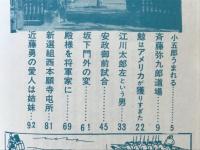 小五郎うまれる 5
斉藤弥九郎道場 9
鯨はアメリカが獲りすぎた 22
江川太郎左という男 33
安政御前試合 45
坂下門外の変 61
殿様を将軍家に 69
新選組西本願寺屯所 81
近藤勇の愛人は姉妹 92